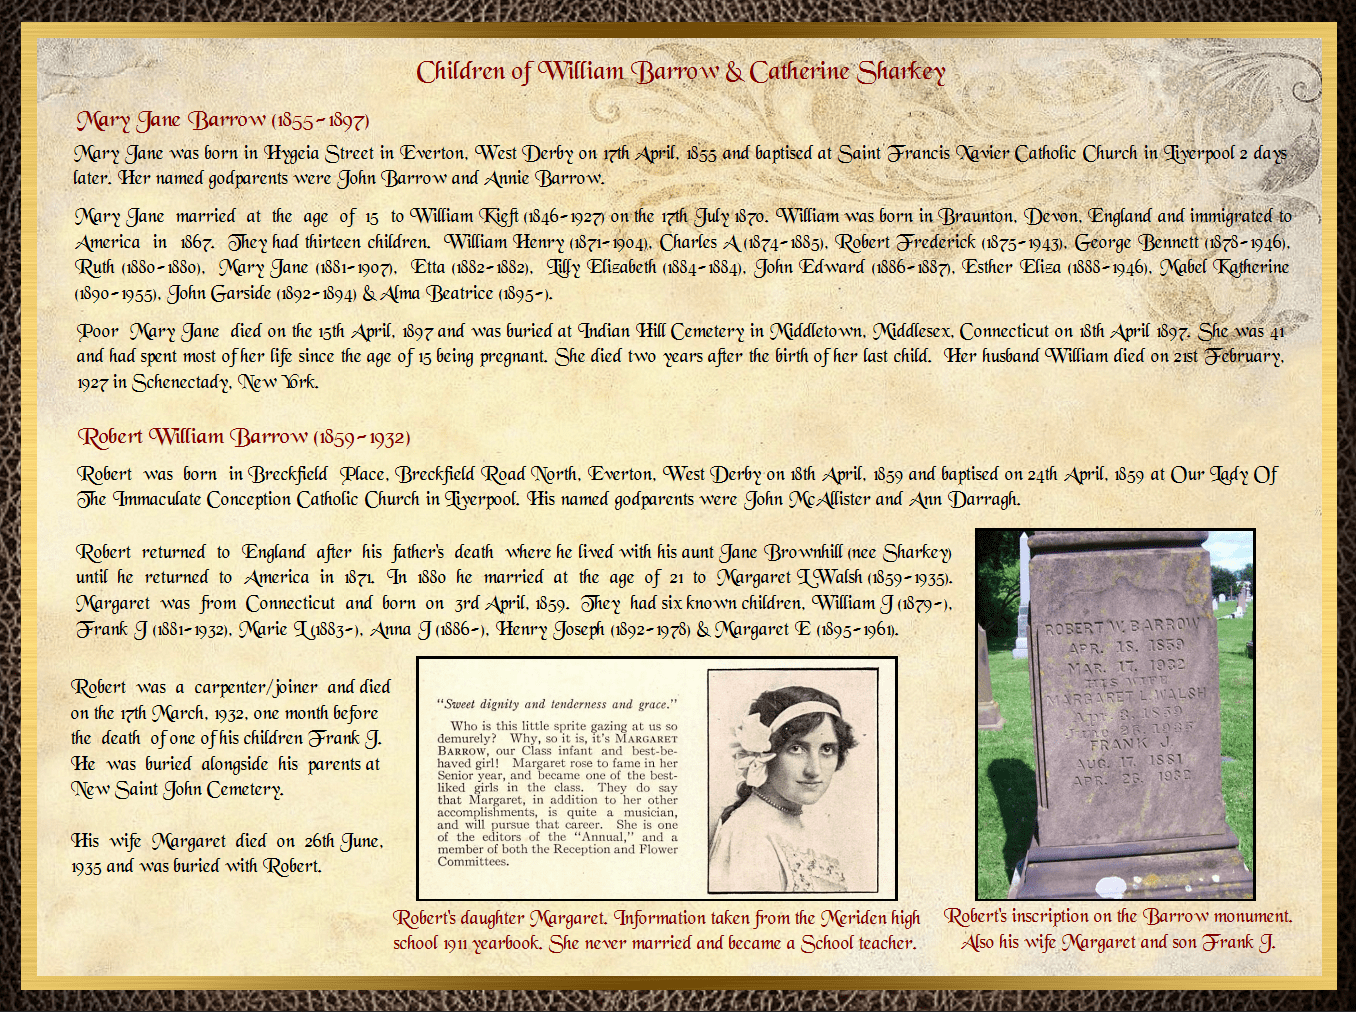 Children of William Barrow & Catherine Sharkey
Mary Jane Barrow (1855-1897)
Mary Jane was born in Hygeia Street in Everton, West Derby on 17th April, 1855 and baptised at Saint Francis Xavier Catholic Church in Liverpool 2 days
later. Her named godparents were John Barrow and Annie Barrow.
Mary Jane married at the age of 15 to William Kieft (1846-1927) on the 17th July 1870. William was born in Braunton, Devon, England and immigrated to
America in 1867. They had thirteen children. William Henry (1871-1904), Charles A (1874-1885), Robert Frederick (1875-1943), George Bennett (1878-1946),
Ruth (1880-1880), Mary Jane (1881-1907), Etta (1882-1882), Lilly Elizabeth (1884-1884), John Edward (1886-1887), Esther Eliza (1888-1946), Mabel Katherine
(1890-1955), John Garside (1892-1894) & Alma Beatrice (1895-).
Poor Mary Jane died on the 15th April, 1897 and was buried at Indian Hill Cemetery in Middletown, Middlesex, Connecticut on 18th April 1897. She was 41
and had spent most of her life since the age of 15 being pregnant. She died two years after the birth of her last child. Her husband William died on 21st February,
1927 in Schenectady, New York.
Robert William Barrow (1859-1932)
Robert was born in Breckfield Place, Breckfield Road North, Everton, West Derby on 18th April, 1859 and baptised on 24th April, 1859 at Our Lady Of
The Immaculate Conception Catholic Church in Liverpool. His named godparents were John McAllister and Ann Darragh.
Robert returned to England after his father's death where he lived with his aunt Jane Brownhill (nee Sharkey)
until he returned to America in 1871. In 1880 he married at the age of 21 to Margaret L Walsh (1859-1935).
Margaret was from Connecticut and born on 3rd April, 1859. They had six known children, William J (1879-),
Frank J (1881-1932), Marie L (1883-), Anna J (1886-), Henry Joseph (1892-1978) & Margaret E (1895-1961).
Robert was a carpenter/joiner and died
on the 17th March, 1932, one month before
the death of one of his children Frank J.
He was buried alongside his parents at
New Saint John Cemetery.
His wife Margaret died on 26th June,
1935 and was buried with Robert.
"Sweet dignity and tenderness and grace."
Who is this little sprite gazing at us so
demurely? Why, so it is, it's MARGARET
BARROW, our Class infant and best-be-
haved girl! Margaret rose to fame in her
Senior year, and became one of the best-
liked girls in the class. They do say
that Margaret, in addition to her other
accomplishments, is quite a musician,
and will pursue that career. She is one
of the editors of the "Annual," and a
member of both the Reception and Flower
Committees.
Robert's daughter Margaret. Information taken from the Meriden high
school 1911 yearbook. She never married and became a School teacher.
ROBERT W. BARROW
APR. 18. 1859
MAR. 17. 1932
HIS WIFE
MARGARET L. WALSH
Apr. 3. 1859
June 26. 1935
FRANK J.
AUG. 17. 1881
APR. 25. 1932
Robert's inscription on the Barrow monument.
Also his wife Margaret and son Frank J.